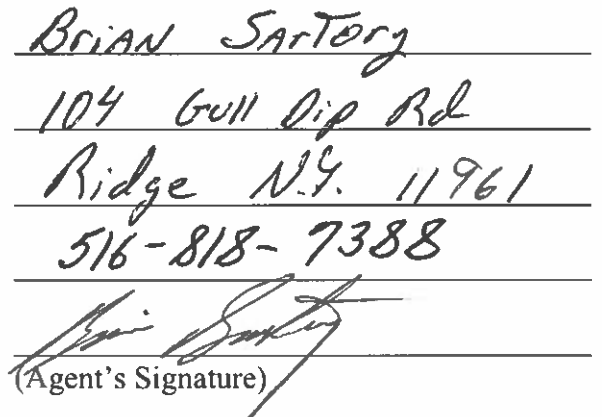 Brian Sartory
104 Gull Dip Rd
Ridge N.Y. 11961
516-818-7388
(Agent's Signature)